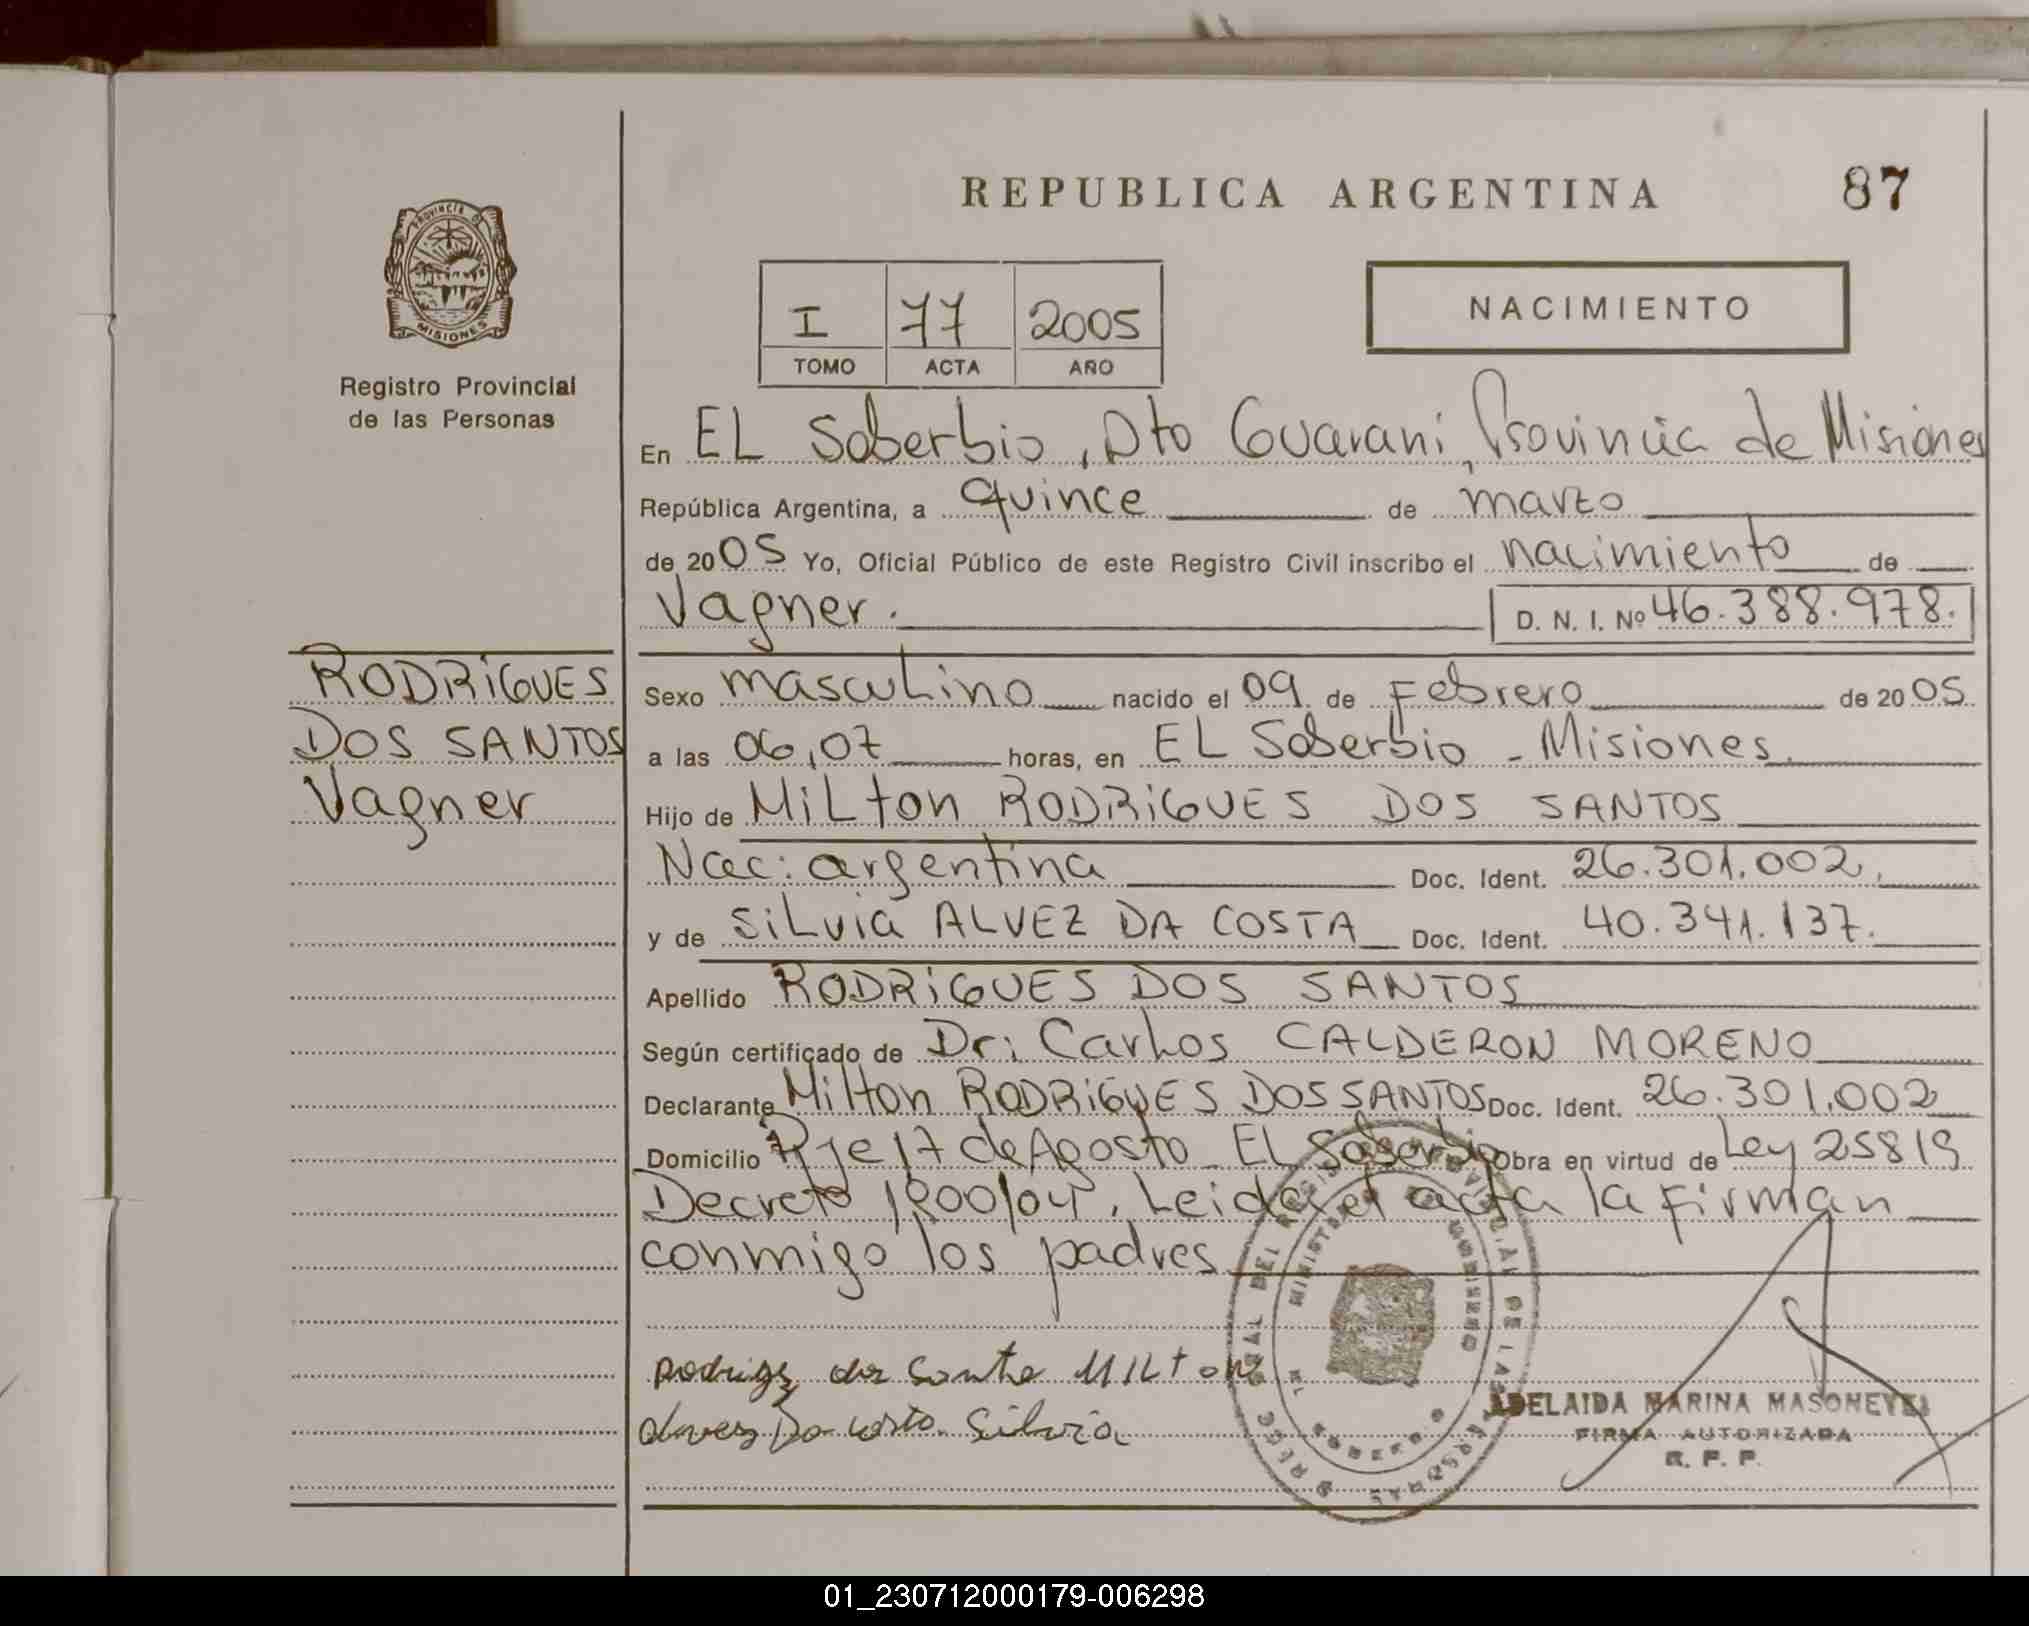 REPUBLICA ARGENTINA
87
PROVINCIA DE
MISIONES
Registro Provincial
de las Personas
I 77 2005
TOMO ACTA AÑO
NACIMIENTO
En EL Soberbio, Dto Guarani, Provincia de Misiones
República Argentina, a quince de marzo
de 2005 Yo, Oficial Público de este Registro Civil inscribo el nacimiento de
Vagner.
D. N. I. Nº 46.388.978.
RODRiGUES
DOS SANTOS
Vagner
Sexo mascuLino nacido el 09 de Febrero de 2005
a las 06,07 horas, en EL Soberbio - Misiones.
Hijo de MiLton RODRiGUES DOS SANTOS
Nac: argentina Doc. Ident. 26.301.002.
y de SiLvia ALVEZ DA COSTA Doc. Ident. 40.341.137.
Apellido RODRiGUES DOS SANTOS
Según certificado de Dr: CarLos CALDERON MORENO
Declarante Milton RODRiGUES DOS SANTOS Doc. Ident. 26.301.002
Domicilio Pje 17 de Agosto - EL Soberbio Obra en virtud de Ley 25819
Decreto 1800/04. Leida el acta la firman
conmigo los padres
dos MILton
Silvia
ADELAIDA MARINA MASONEYEI
FIRMA AUTORIZADA
R. P. P.
01_230712000179-006298